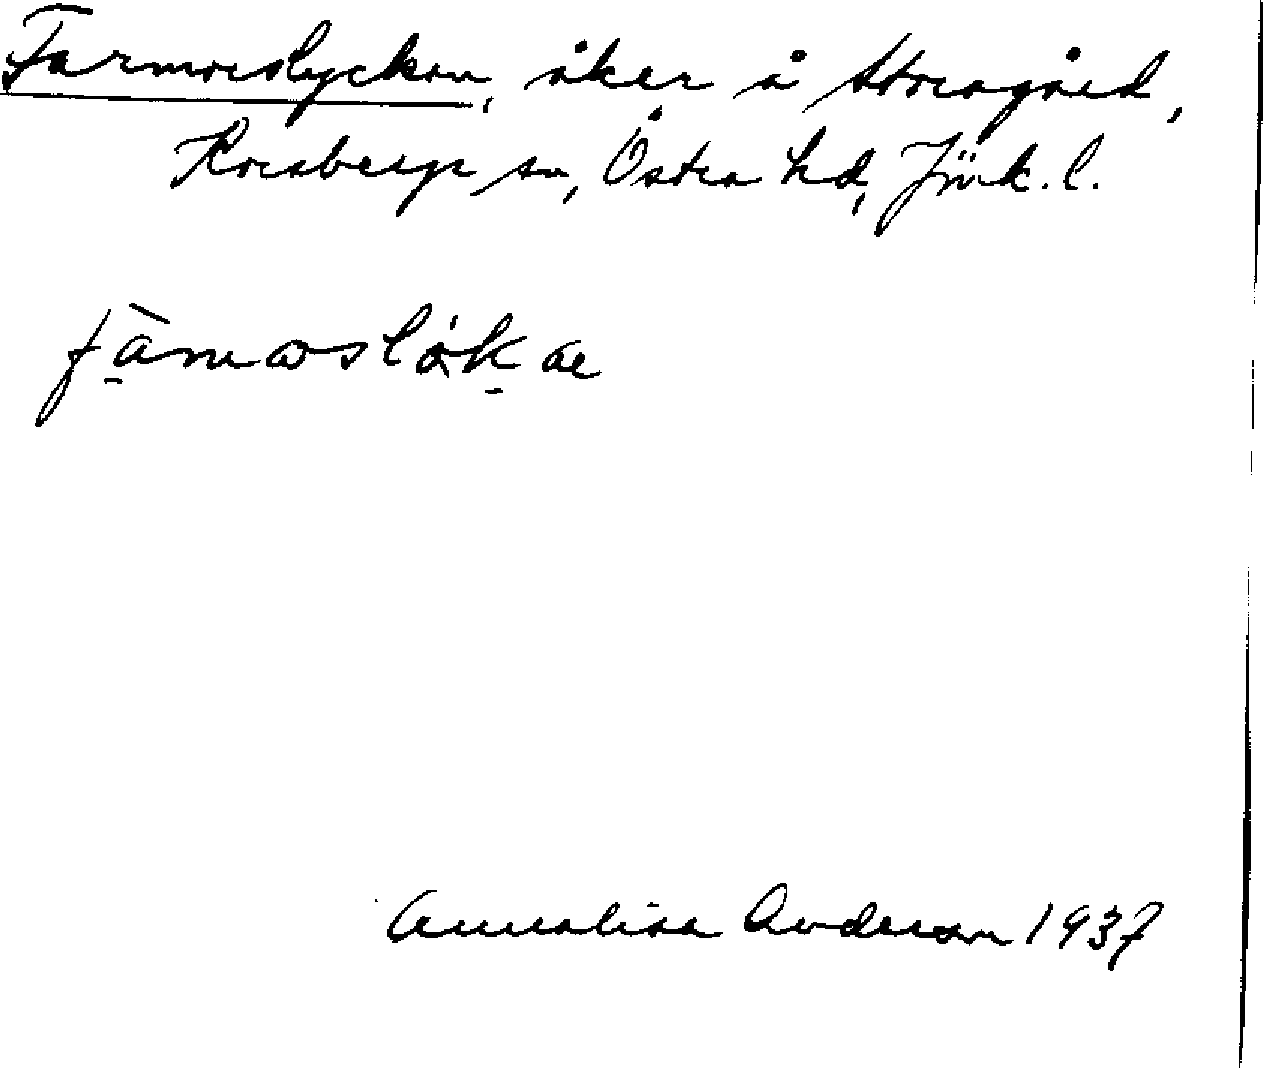 Farmorslyckan, åker å Storagård,
Korsberga sn, Östra hd, Jönk. l.
Annalisa Anderson 1937